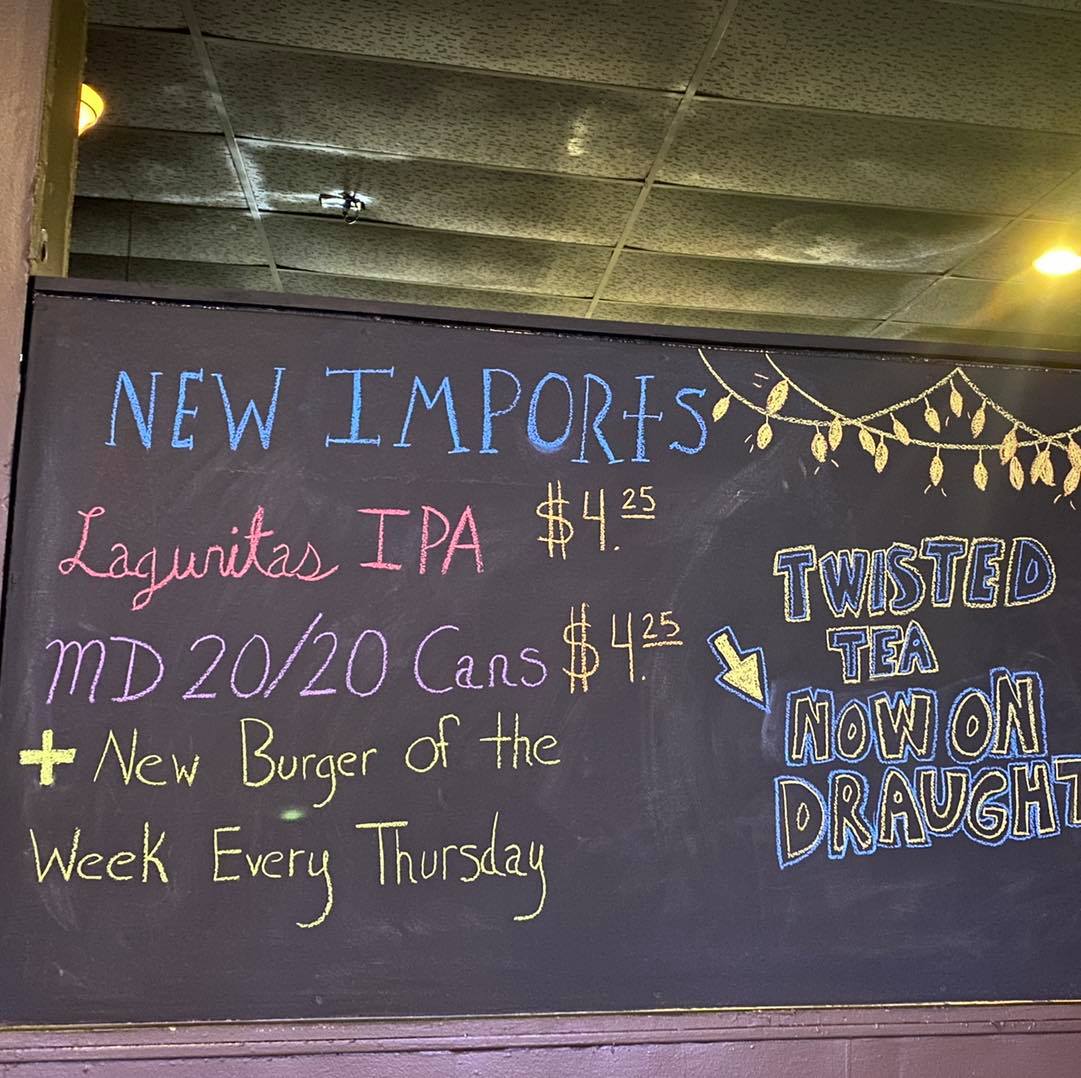 NEW IMPORTS
Lagunitas IPA $4.25
MD 20/20 Cans $4.25
+ New Burger of the
Week Every Thursday
TWISTED
TEA
NOW ON
DRAUGHT